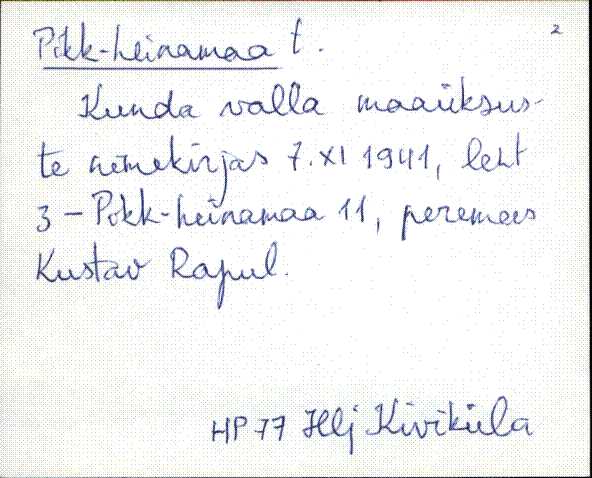 2
Pikk-heinamaa t.
Kunda valla maaüksus-
te nimekirjas 7.XI 1941, leht
3 - Pikk-heinamaa 11, peremees
Kustav Rapul.
HP 77 Hlj Kiviküla